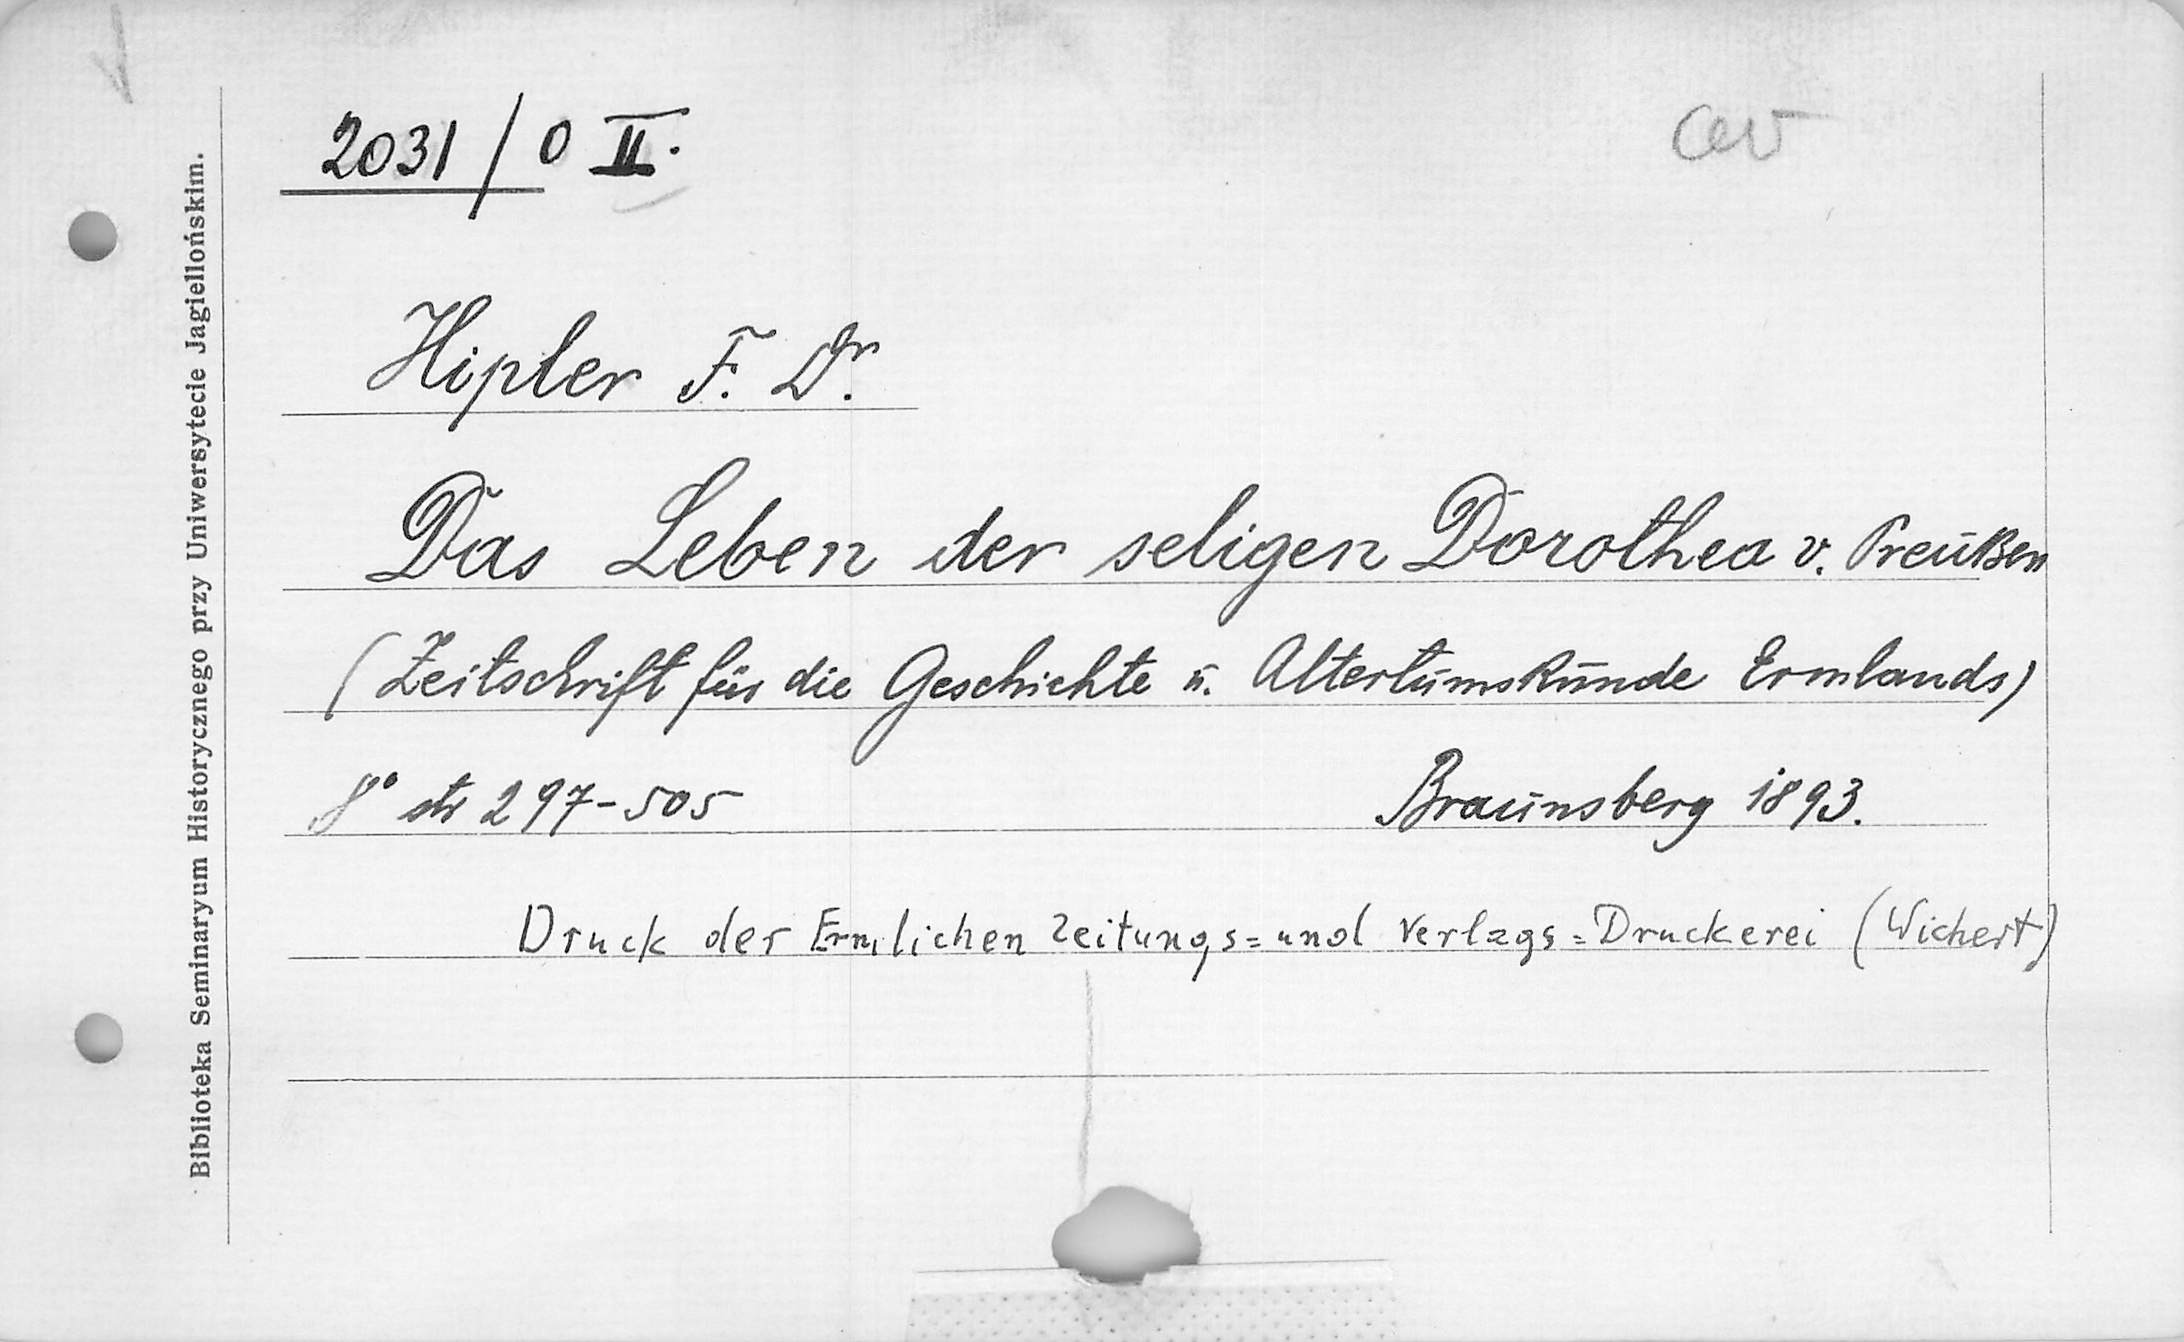 2031/0 II.
av
Hipler F. Dr.
Das Leben der seligen Dorothea v. Preußen
(Zeitschrift für die Geschichte u. Altertumskunde Ermlands)
8° str 297-505 Braunsberg 1893.
Druck der Ermlichen Zeitungs= und Verlags=Druckerei (Wichert)
Biblioteka Seminaryum Historycznego przy Uniwersytecie Jagiellońskim.